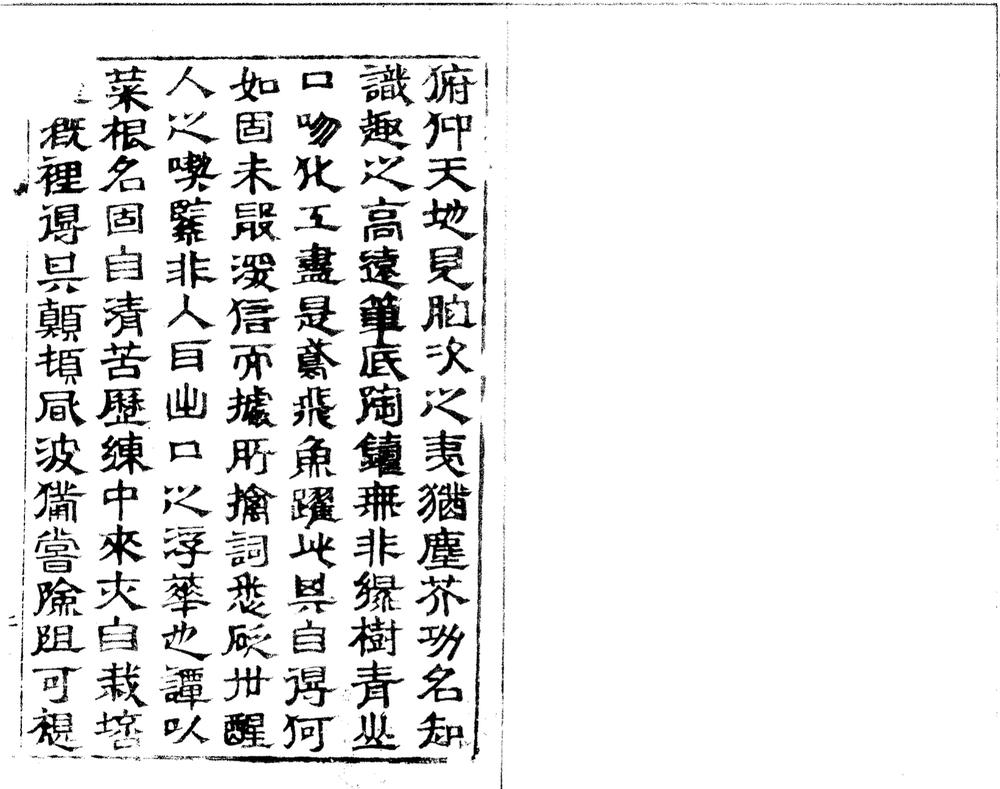 俯仰天地見胸次之夷猶塵芥功名知
識趣之高遠筆底陶鑄無非綠樹青山
口吻化工盡是鳶飛魚躍此其自得何
如固未能深信而據所擒詞悉砭世醒
人之喫緊非入耳出口之浮華也譚以
菜根名固自清苦歷練中來亦自栽培
灌溉裡得其顛頓風波備嘗險阻可想